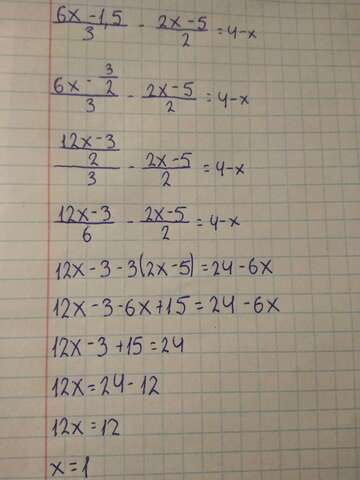 (6x-1,5)/3 - (2x-5)/2 = 4-x
(6x - 3/2)/3 - (2x-5)/2 = 4-x
((12x-3)/2)/3 - (2x-5)/2 = 4-x
(12x-3)/6 - (2x-5)/2 = 4-x
12x-3-3(2x-5)=24-6x
12x-3-6x+15=24-6x
12x-3+15=24
12x=24-12
12x=12
x=1